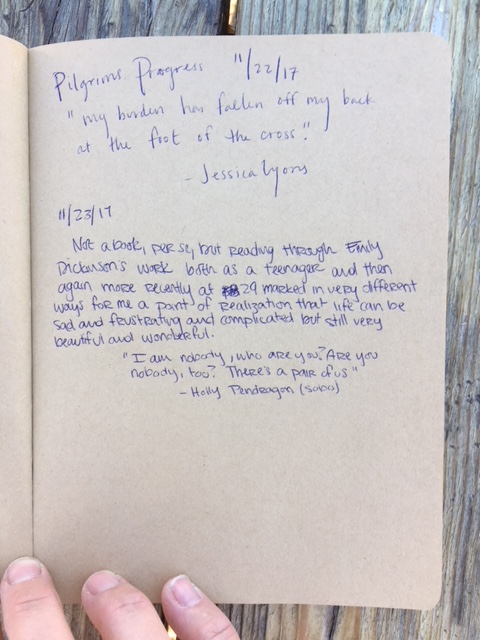 Pilgrims Progress 11/22/17
"my burden has fallen off my back
at the foot of the cross."
- Jessica Lyons
11/23/17
Not a book, per se, but reading through Emily
Dickinson's work both as a teenager and then
again more recently at 29 marked in very different
ways for me a point of realization that life can be
sad and frustrating and complicated but still very
beautiful and wonderful.
"I am nobody, who are you? Are you
nobody, too? There's a pair of us"
- Holly Pendragon (sobo)